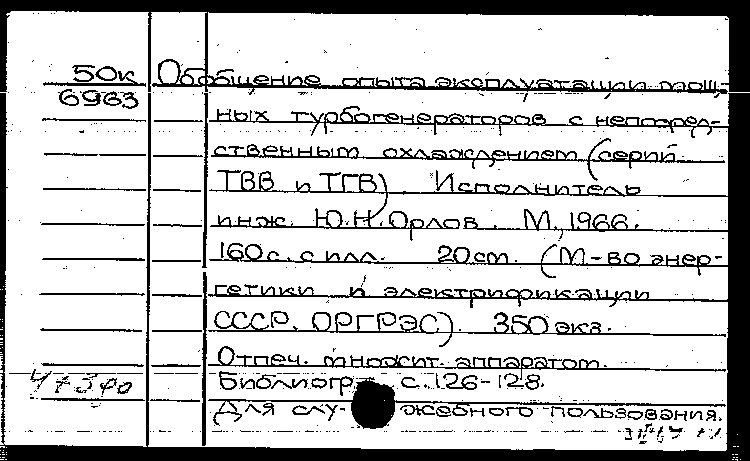 50к Обобщение опыта эксплуатации мощ-
6963
ных турбогенераторов с непосред-
ственным охлаждением (серий
ТВВ и ТГВ). Исполнитель
инж. Ю.Н. Орлов. М., 1966.
160 с. с илл. 20 см. (М-во энер-
гетики и электрификации
СССР. ОРГРЭС). 350 экз.
Отпеч. множит. аппаратом.
Библиогр. с. 126-128.
Для слу- жебного пользования.